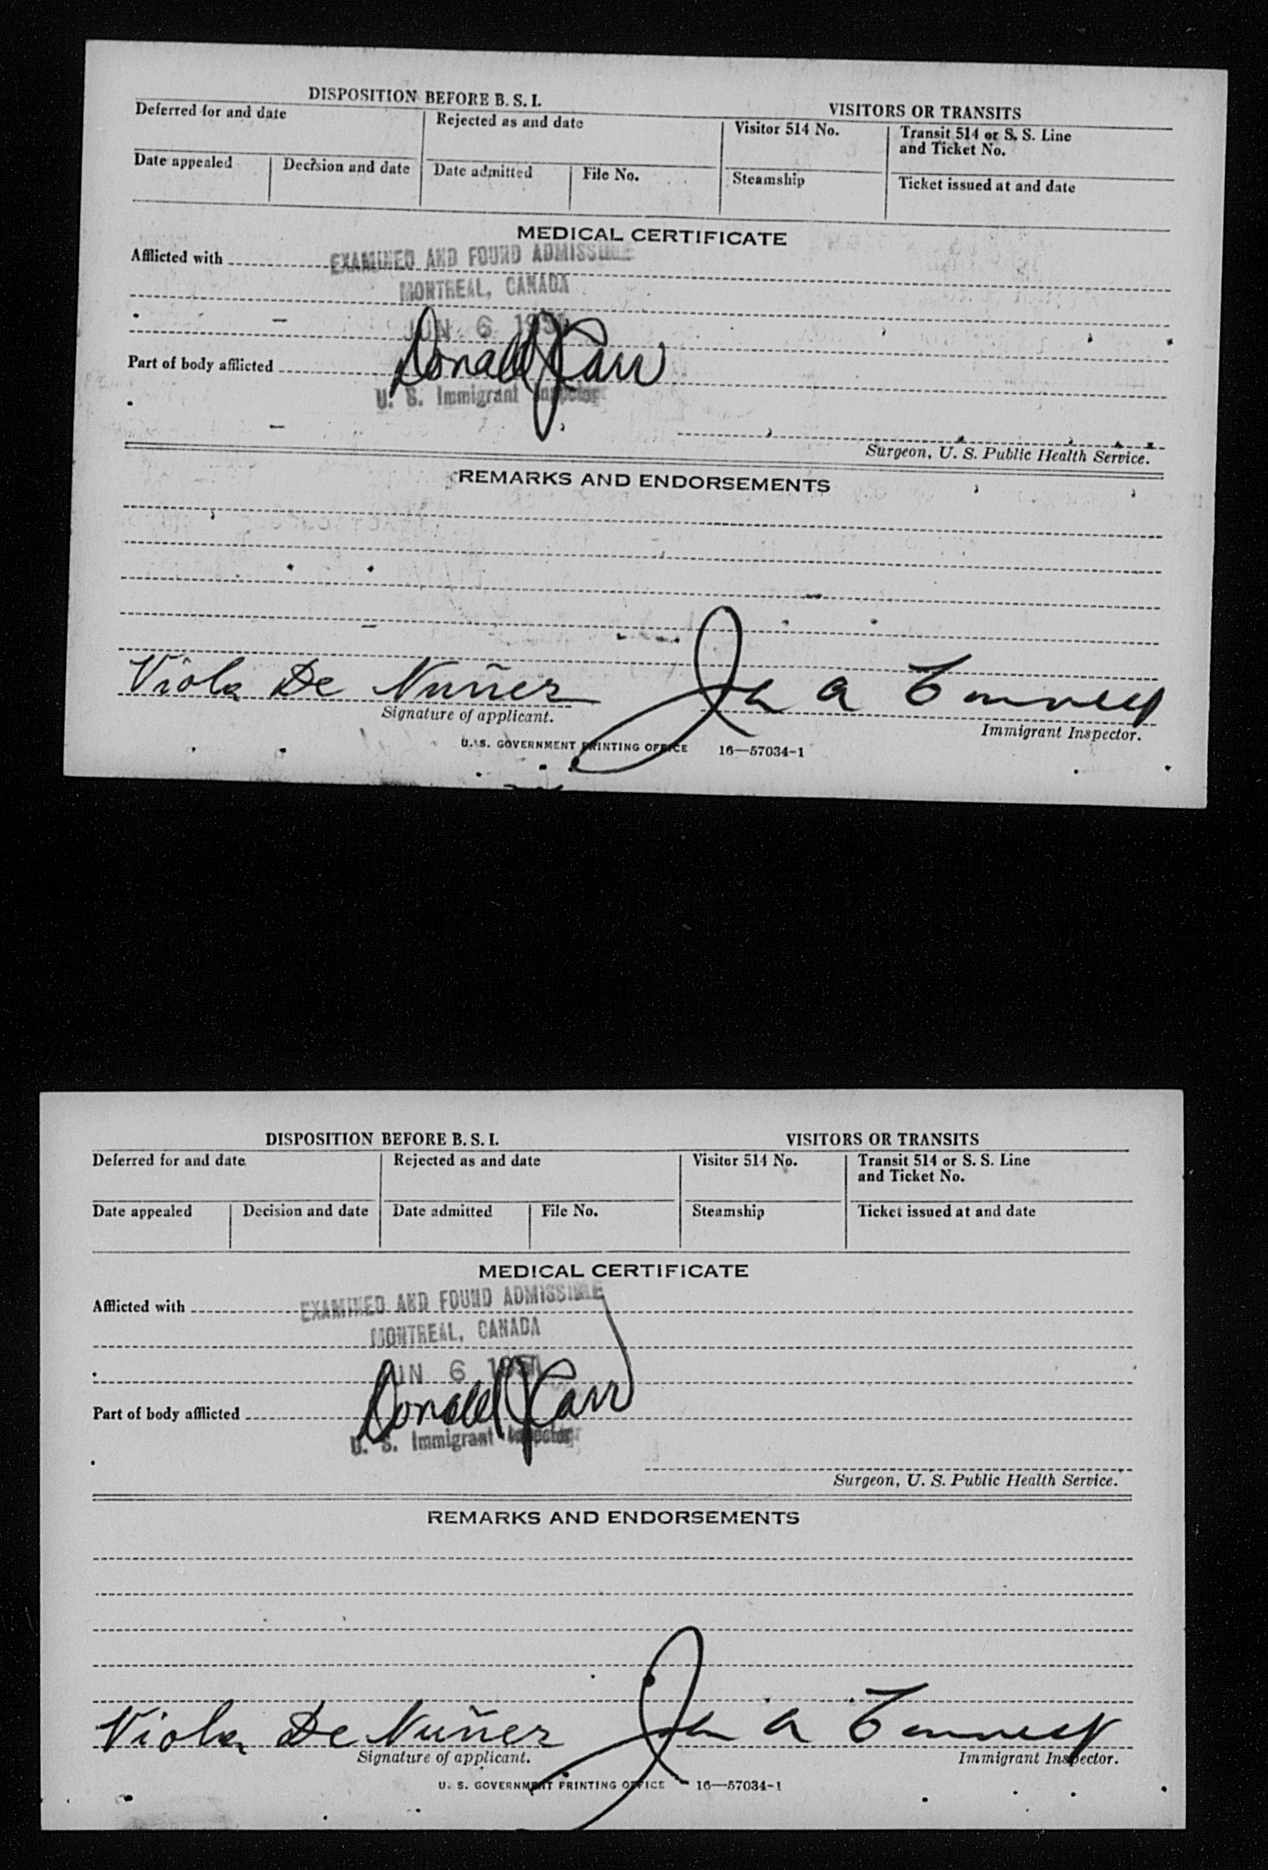 DISPOSITION BEFORE B. S. I.
VISITORS OR TRANSITS
Deferred for and date
Rejected as and date
Visitor 514 No.
Transit 514 or S. S. Line
and Ticket No.
Date appealed
Decision and date
Date admitted
File No.
Steamship
Ticket issued at and date
MEDICAL CERTIFICATE
Afflicted with
EXAMINED AND FOUND ADMISSIBLE
MONTREAL, CANADA
JUN 6
Donald J Carr
Part of body afflicted
U. S. Immigrant Inspector
Surgeon, U. S. Public Health Service.
REMARKS AND ENDORSEMENTS
Viola De Nuñez
Signature of applicant.
Immigrant Inspector.
U. S. GOVERNMENT PRINTING OFFICE 16—57034-1
DISPOSITION BEFORE B. S. I.
VISITORS OR TRANSITS
Deferred for and date
Rejected as and date
Visitor 514 No.
Transit 514 or S. S. Line
and Ticket No.
Date appealed
Decision and date
Date admitted
File No.
Steamship
Ticket issued at and date
MEDICAL CERTIFICATE
Afflicted with
EXAMINED AND FOUND ADMISSIBLE
MONTREAL, CANADA
JUN 6
Donald J Carr
Part of body afflicted
U. S. Immigrant Inspector
Surgeon, U. S. Public Health Service.
REMARKS AND ENDORSEMENTS
Viola De Nuñez
Signature of applicant.
Immigrant Inspector.
U. S. GOVERNMENT PRINTING OFFICE 16—57034-1